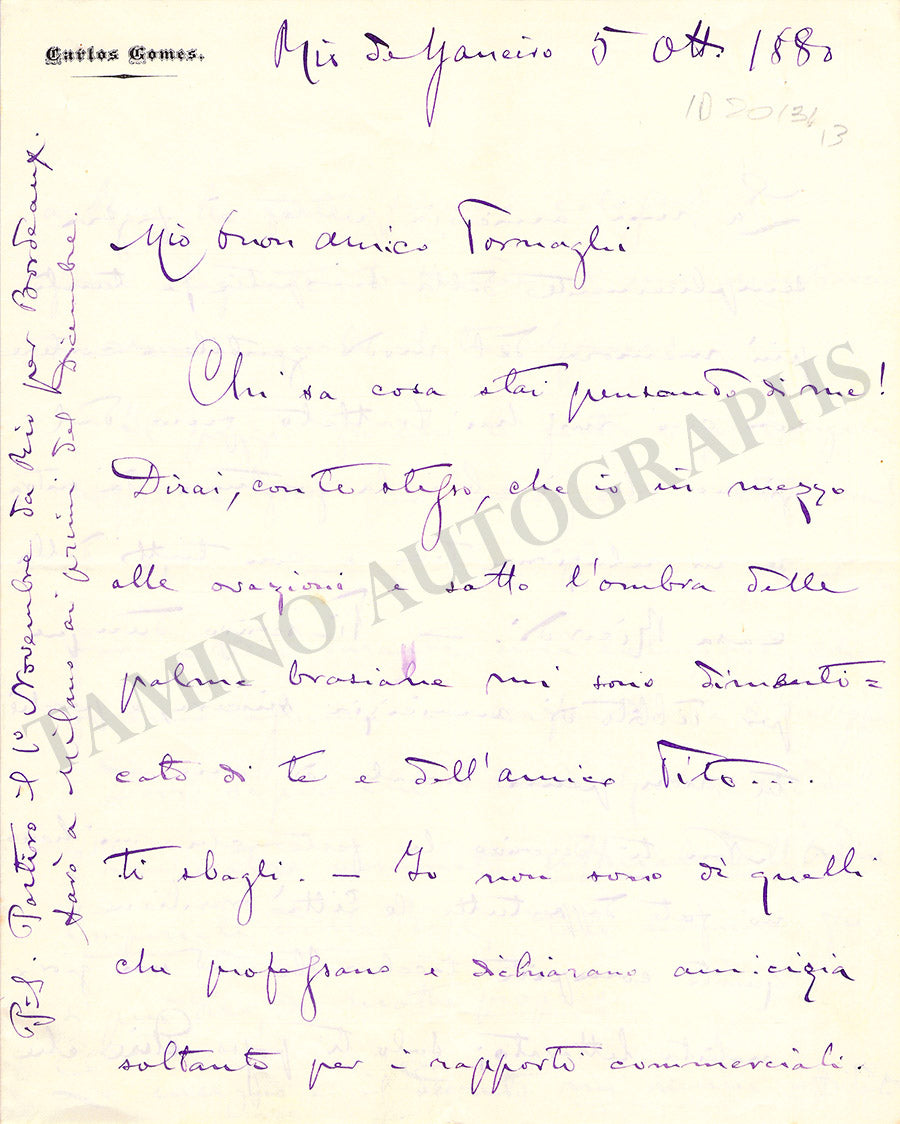 Carlos Gomes.
Rio de Janeiro 5 Ott. 1880
ID 20134
13
Mio buon amico Tornaghi
Chi sa cosa stai pensando di me!
Dirai, con te stesso, che io in mezzo
alle ovazioni e sotto l'ombra delle
palme brasiane mi sono dimenti=
cato di te e dell'amico Tito....
ti sbagli. — Io non sono di quelli
che professano e dichiarano amicizia
soltanto per i rapporti commerciali.
P.S. Partirò il 1º Novembre da Rio per Bordeaux.
Sarò a Milano ai primi del Dicembre.
TAMINO AUTOGRAPHS